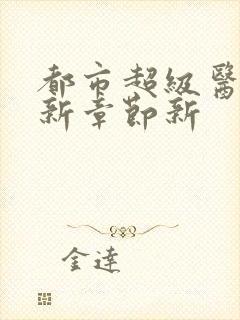 都市超級醫
新章節新
金達